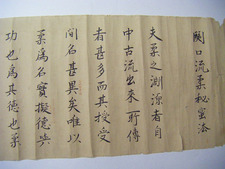 関口流柔秘蜜法
夫柔之淵源者自
中古流出来所傳
者甚多而其授受
間名甚異矣唯以
柔為名實擬德共
功也為其德也柔